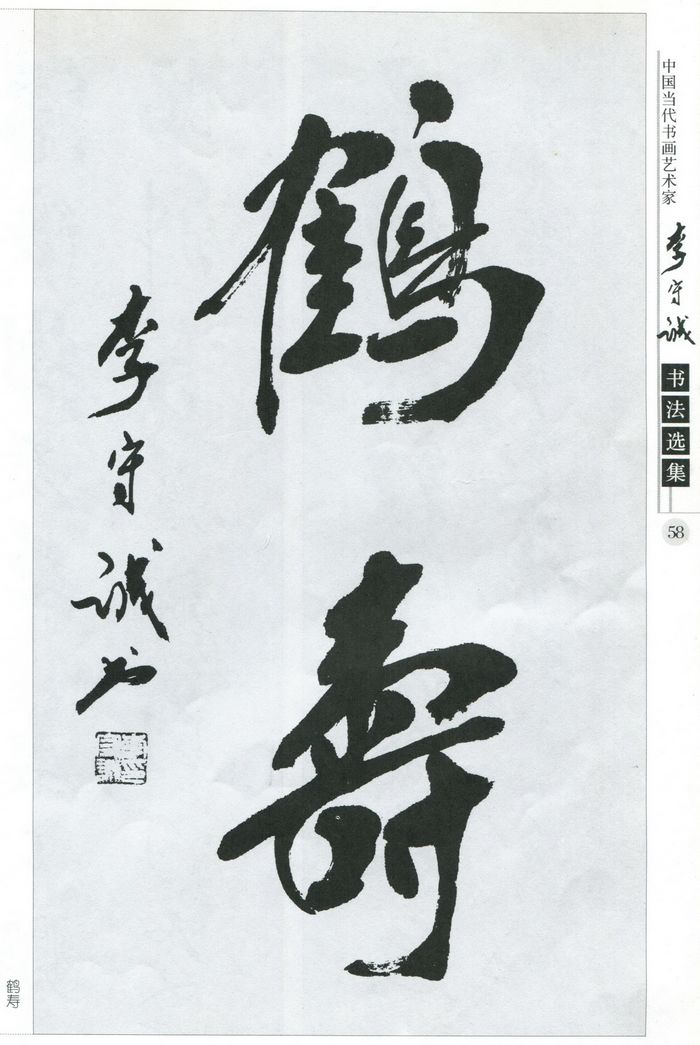 中国当代书画艺术家
李守诚
书法选集
58
鹤寿
李守诚书
鹤寿